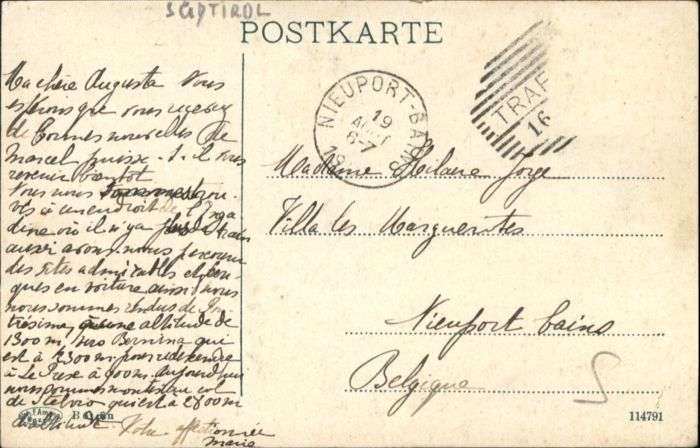 SÜDTIROL
POSTKARTE
Ma chère Augusta Nous
espérons que vous recevez
de bonnes nouvelles de
Marcel puisse-t-il vous
revenir bientôt
Nous nous
à un endroit de
où il n'y a plus de train
aussi avons-nous parcouru
des sites admirables
en voiture ainsi nous
nous sommes rendus de
altitude de
1800 m. vers Bernina qui
est à 2300 m. pour redescendre
à Le Prese à 900 m. aujourd'hui
nous sommes montés au col
de Stelvio qui est à 2800 m
d'altitude. Votre affectionnée
Marie
NIEUPORT-BAINS
19
AOUT
6-7
19
TRAF
16
Madame Hilaire Jorge
Villa les Marguerites
Nieuport bains
Belgique
114791